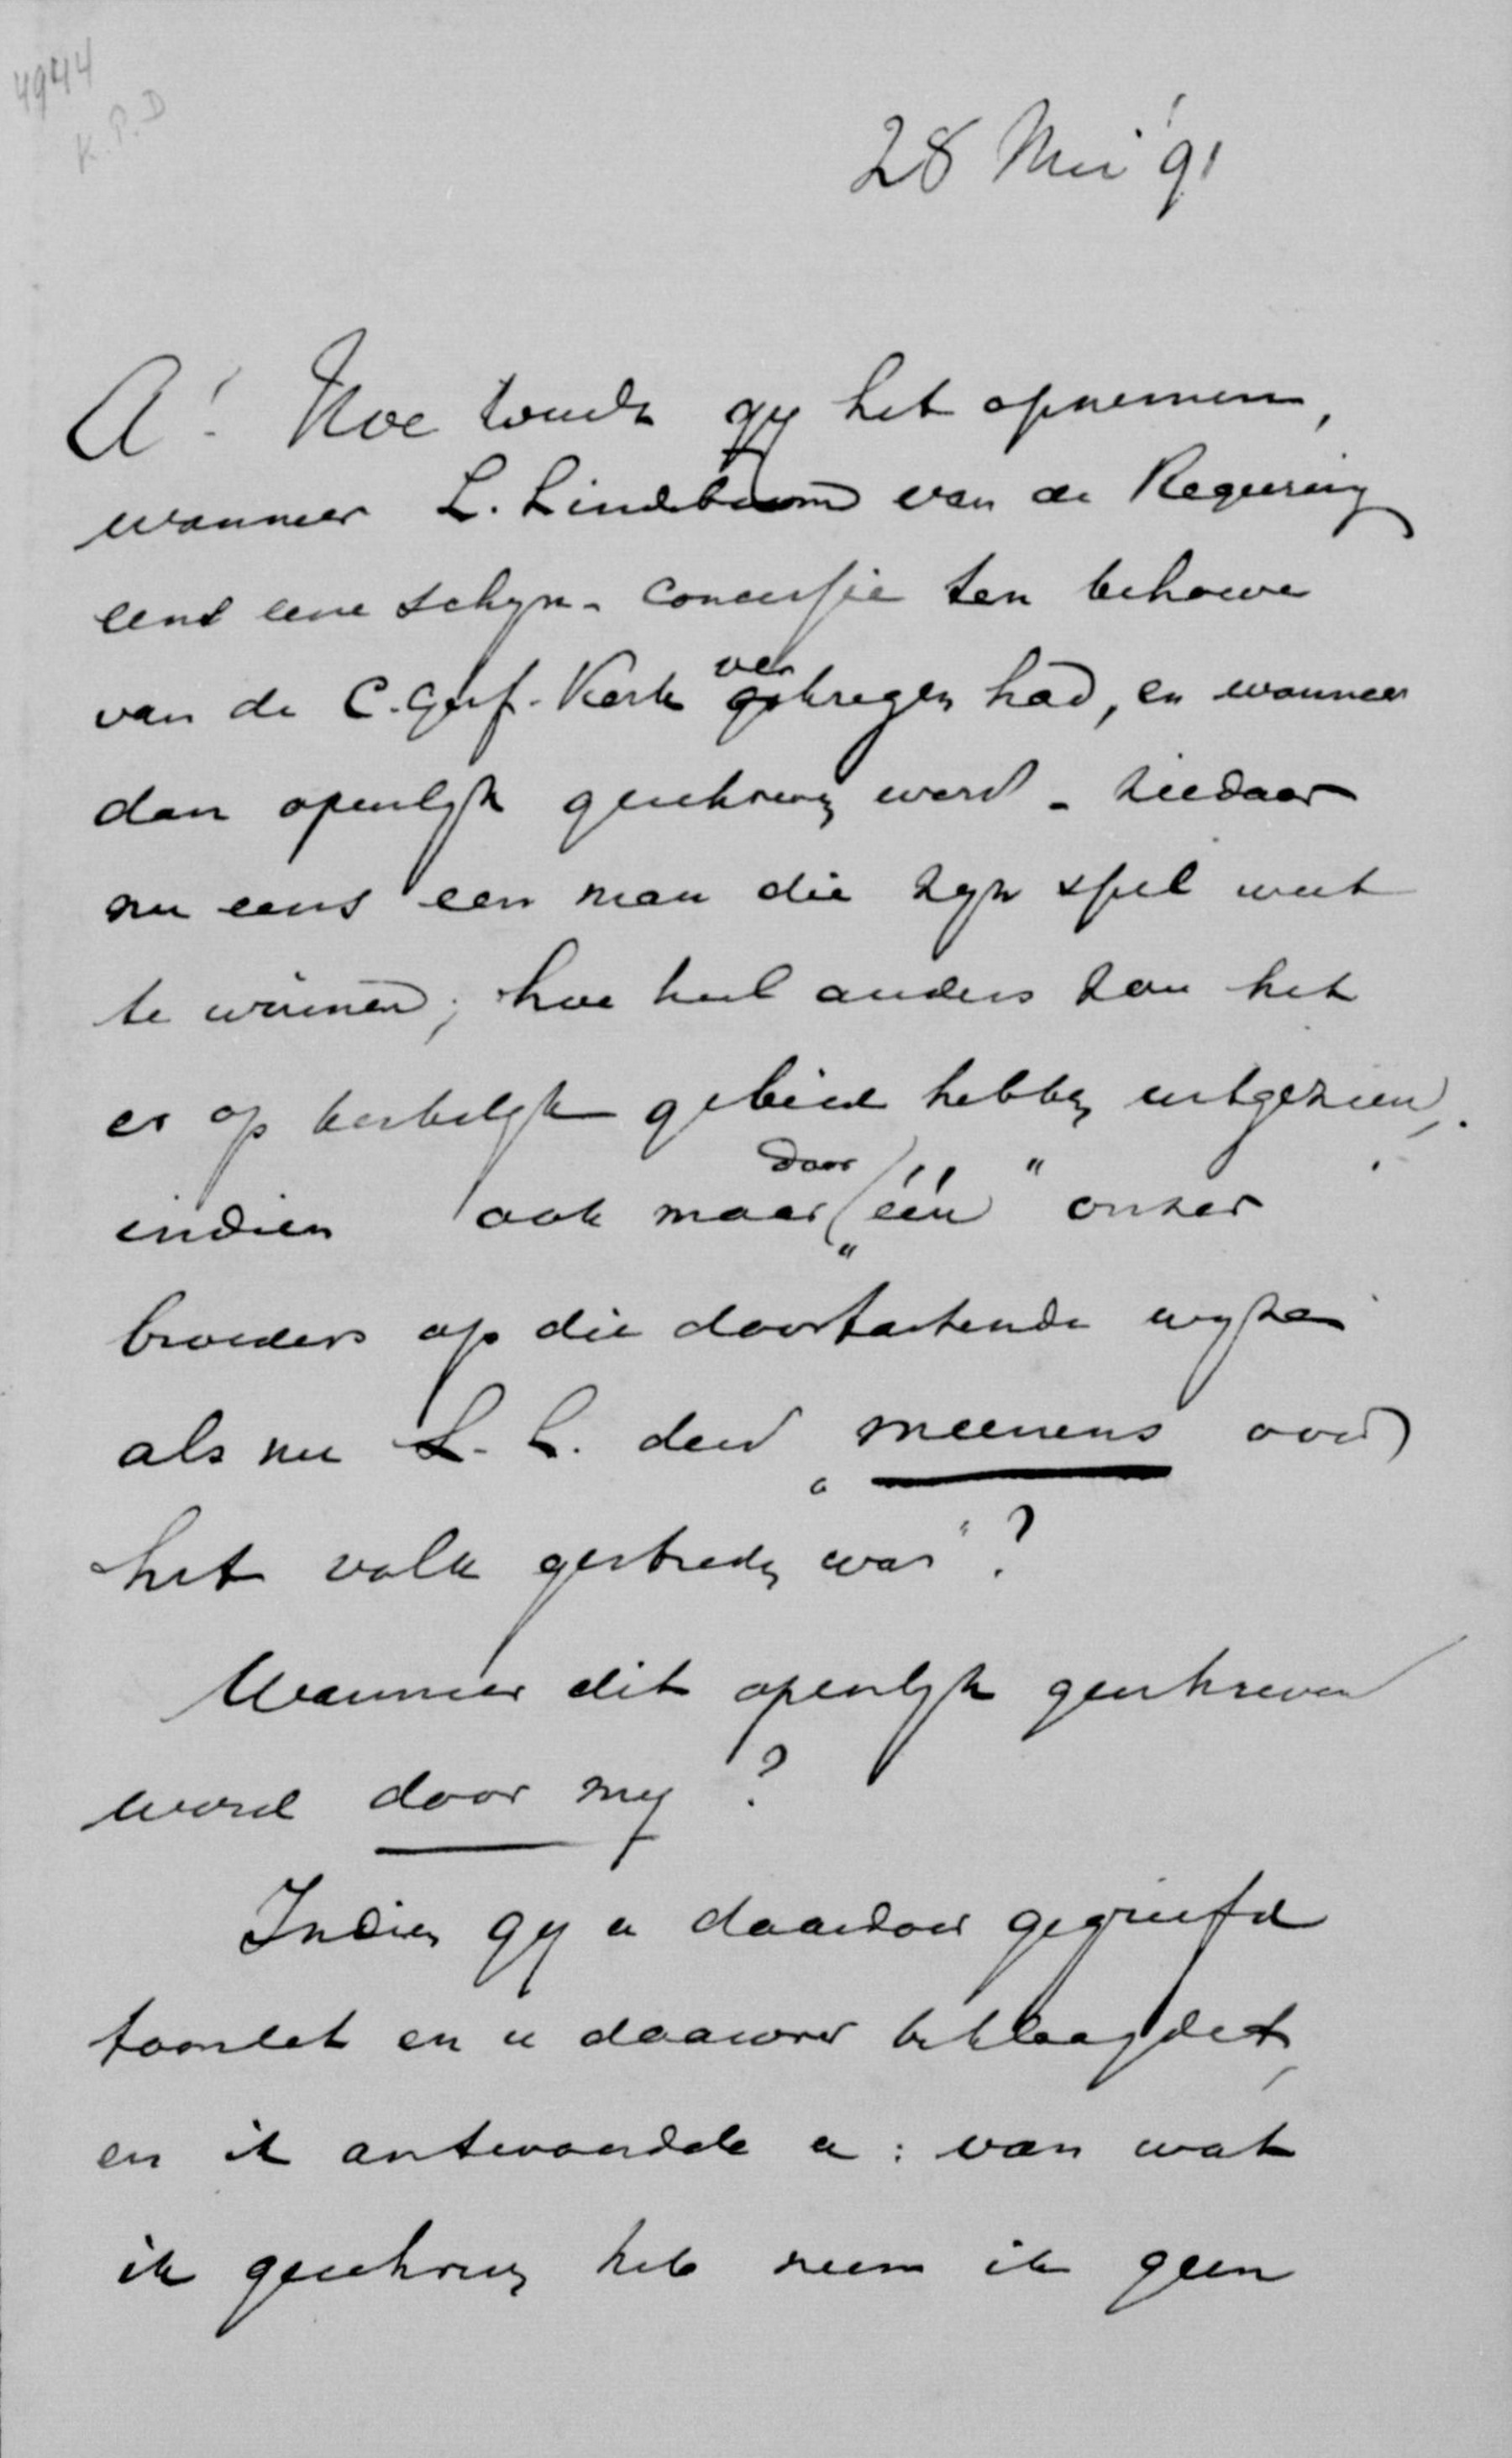 4944
K.P.D
28 Mei '91
A! Hoe zoudt gy het opnemen,
wanneer L. Lindeboom van de Regeering
eens eene schyn-concessie ten behoeve
van de C. Geref. Kerk verkregen had, en wanneer
dan openlyk geschreven werd - ziedaar
nu eens een man die zyn spel weet
te winnen; hoe heel anders zou het
er op kerkelyk gebied hebben uitgezien,
indien ook maar door „één" onzer
broeders op die doortastende wyze
als nu L. L. deed „meenens voor
het volk gestreden was"?
Wanneer dit openlyk geschreven
werd door my?
Indien gy u daardoor gegriefd
toondet en u daarover beklaagdet,
en ik antwoordde u: van wat
ik geschreven heb neem ik geen